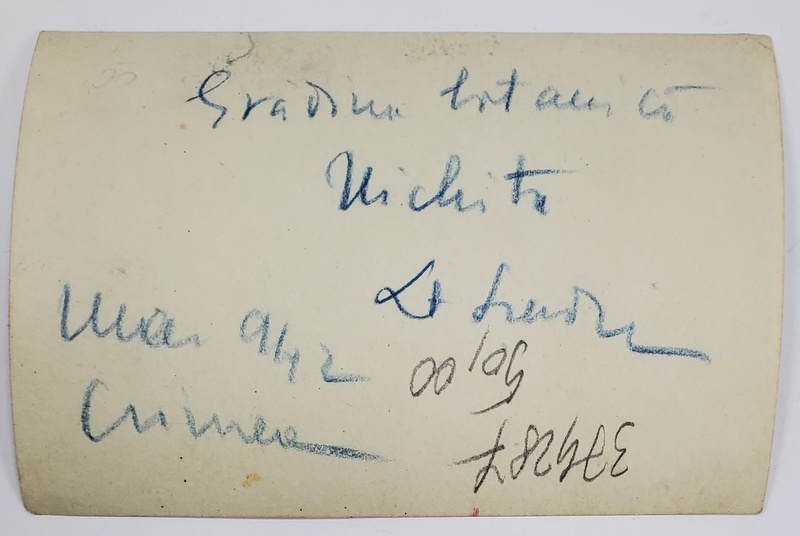 50
Grădina botanică
Nichita
Lt
Mai 942
Crimeea
50,00
379287